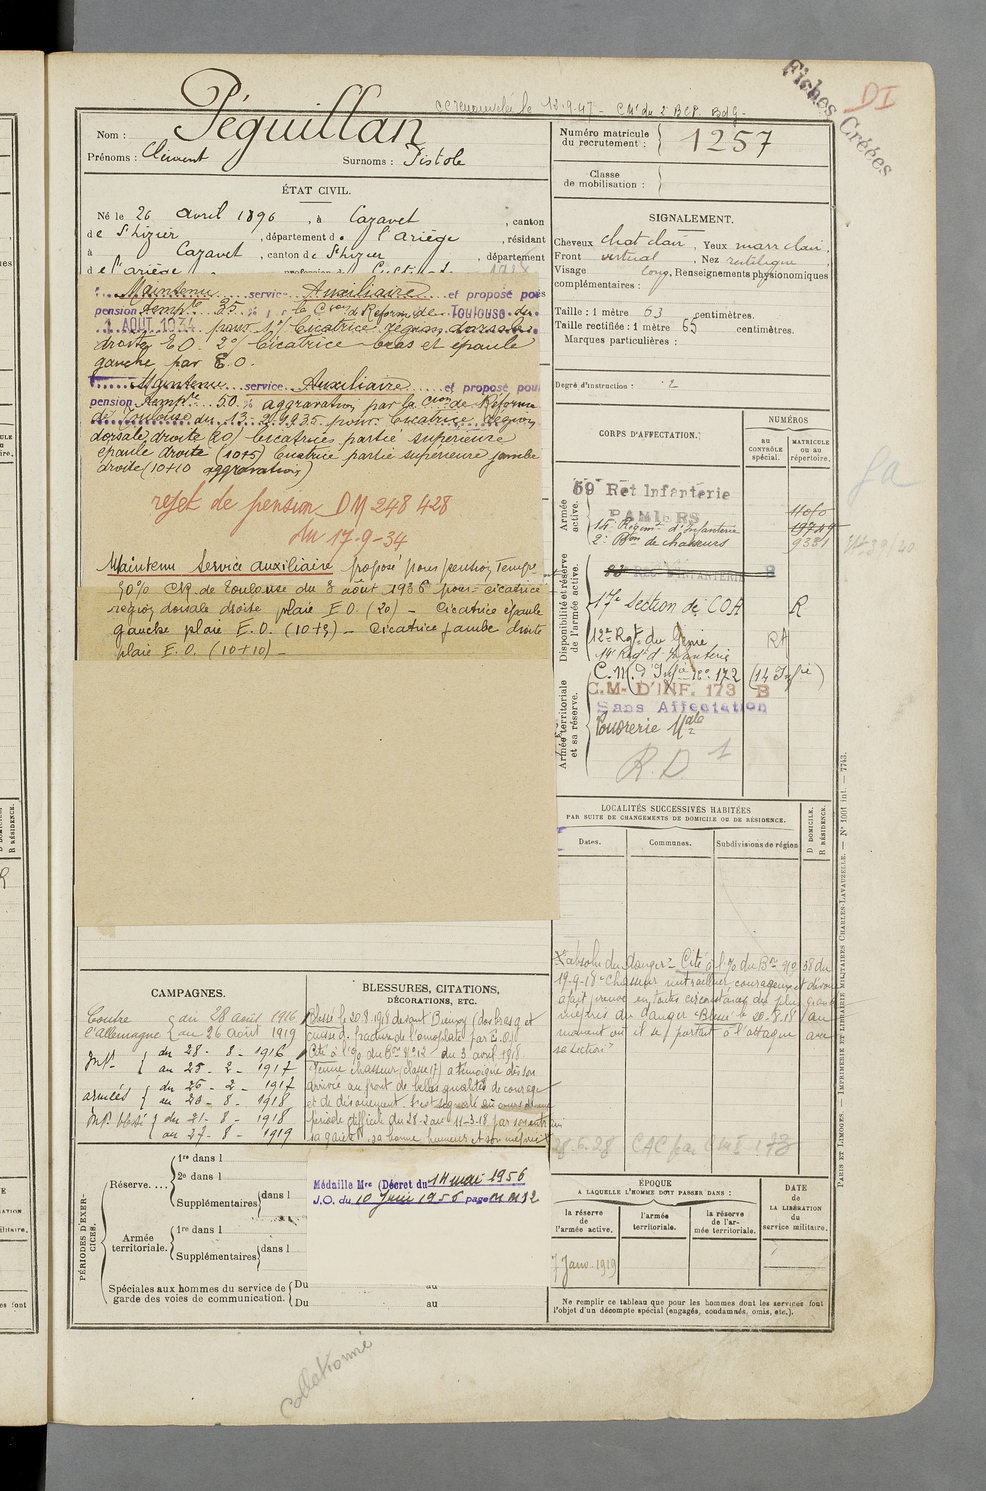 Fiches Créées
DI
CC renouvelée le 12-9-47 - CM du 2e BCP. Bdg -
Nom : Péguillan
Prénoms : Clément Surnoms : Pistole
Numéro matricule du recrutement : 1257
Classe de mobilisation :
ÉTAT CIVIL.
Né le 26 avril 1896, à Cazavet, canton
de St Lizier, département de l'Ariège, résidant
à Cazavet, canton de St Lizier, département
de l'ariège
SIGNALEMENT.
Cheveux chat clair, Yeux marr clair,
Front vertical, Nez rectiligne,
Visage long, Renseignements physionomiques
complémentaires :
Taille : 1 mètre 63 centimètres.
Taille rectifiée : 1 mètre 65 centimètres.
Marques particulières :
Degré d'instruction : 2
Maintenu service Auxiliaire et proposé pour
pension temp re 35 % par la Con de Réforme de Toulouse du
1 AOUT 1934 pour 1°/ Cicatrice région dorsale
droite E O. 2°/ Cicatrice bras et épaule
gauche par E.O.
Maintenu service Auxiliaire et proposé pour
pension temp re 50 % aggravation par la Cion de Réforme
de Toulouse du 13-2-1935 pour Cicatrice région
dorsale droite (20) Cicatrices partie supérieure
épaule droite (10+5) Cicatrice partie supérieure jambe
droite (10+10 aggravation)
rejet de pension DM 248 428
du 17-9-34
Maintenu Service auxiliaire proposé pour pension Tempe
50% CR de Toulouse du 3 août 1936 pour cicatrice
région dorsale droite plaie E.O. (20) - Cicatrice épaule
gauche plaie E.O. (10+5) - Cicatrice jambe droite
plaie E.O. (10+10) -
CORPS D'AFFECTATION.
NUMÉROS
au CONTRÔLE spécial.
MATRICULE ou au répertoire.
Armée active.
59 Rgt Infanterie
PAMIERS
14e Régiment d'Infanterie
2e Bon de chasseurs 9331
Disponibilité et réserve de l'armée active.
RÉG D'INFANTERIE B
17e Section de COA R
12e Rgt du Génie RA
14e Regt d'Infanterie
Armée territoriale et sa réserve.
C.M. d'Infie No 172 (14 Infie)
C.M. D'INF. 173 B
Sans Affectation
Poudrerie Nale
R.D. 1
ga
LOCALITÉS SUCCESSIVES HABITÉES
PAR SUITE DE CHANGEMENTS DE DOMICILE OU DE RÉSIDENCE.
Dates. Communes. Subdivisions de région
D DOMICILE. R RÉSIDENCE.
absolu du danger". Cité à l'o/ du Bon No 38 du
19-9-18 "Chasseur mitrailleur, courageux et dévoué
a fait preuve en toutes circonstances du plus grand
mépris du danger. Blessé le 20-8-18 au
moment où il se portait à l'attaque avec
sa section"
28.6.28 CAC par CMI 173
CAMPAGNES.
Contre du 28 août 1916
l'Allemagne au 26 août 1919
Int. du 28 - 8 - 1916
au 25 - 2 - 1917
armées du 26 - 2 - 1917
au 20 - 8 - 1918
Int. blessé du 21 - 8 - 1918
au 27 - 8 - 1919
BLESSURES, CITATIONS,
DÉCORATIONS, ETC.
Blessé le 20.8.1918 devant Bieuxy (dos bras g et
cuisse d. fracture de l'omoplate par E.O.)
Cité à l'o/ du Bon No 12 du 3 avril 1918
"Jeune chasseur (classe 17) a témoigné dès son
arrivée au front de belles qualités de courage
et de dévouement. S'est signalé au cours d'une
période difficile du 28-2 au 11-3-18 par son entrain
sa gaieté, sa bonne humeur et son mépris
Médaille Mre (Décret du 14 mai 1956
J.O. du 10 Juin 1956 page
PÉRIODES D'EXERCICES.
Réserve....
1re dans l
2e dans l
Supplémentaires dans l
Armée territoriale.
1re dans l
Supplémentaires dans l
Spéciales aux hommes du service de garde des voies de communication.
Du au
Du au
ÉPOQUE
A LAQUELLE L'HOMME DOIT PASSER DANS :
la réserve de l'armée active.
l'armée territoriale.
la réserve de l'armée territoriale.
DATE DE LA LIBÉRATION du service militaire.
7 Janv. 1919
Ne remplir ce tableau que pour les hommes dont les services font
l'objet d'un décompte spécial (engagés, condamnés, omis, etc.).
PARIS ET LIMOGES. — IMPRIMERIE ET LIBRAIRIE MILITAIRES CHARLES-LAVAUZELLE. — N° 1001 int. — 7743.
Collationné